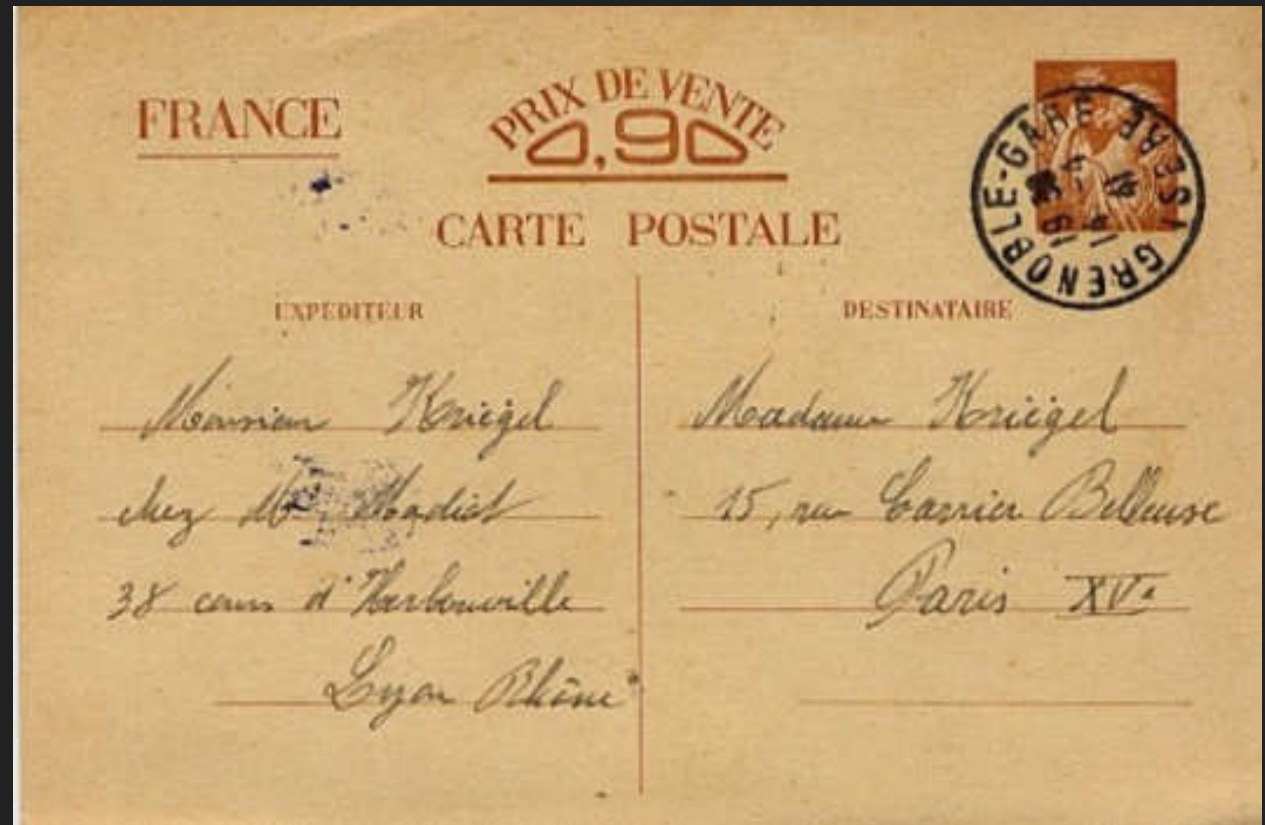 FRANCE
PRIX DE VENTE
0,90
CARTE POSTALE
GRENOBLE-GARE
ISERE
14-4
41
EXPEDITEUR
Monsieur Kriegel
chez Mr Madiot
38 cours d'Herbouville
Lyon Rhône
DESTINATAIRE
Madame Kriegel
15, rue Carrier Belleuse
Paris XVe